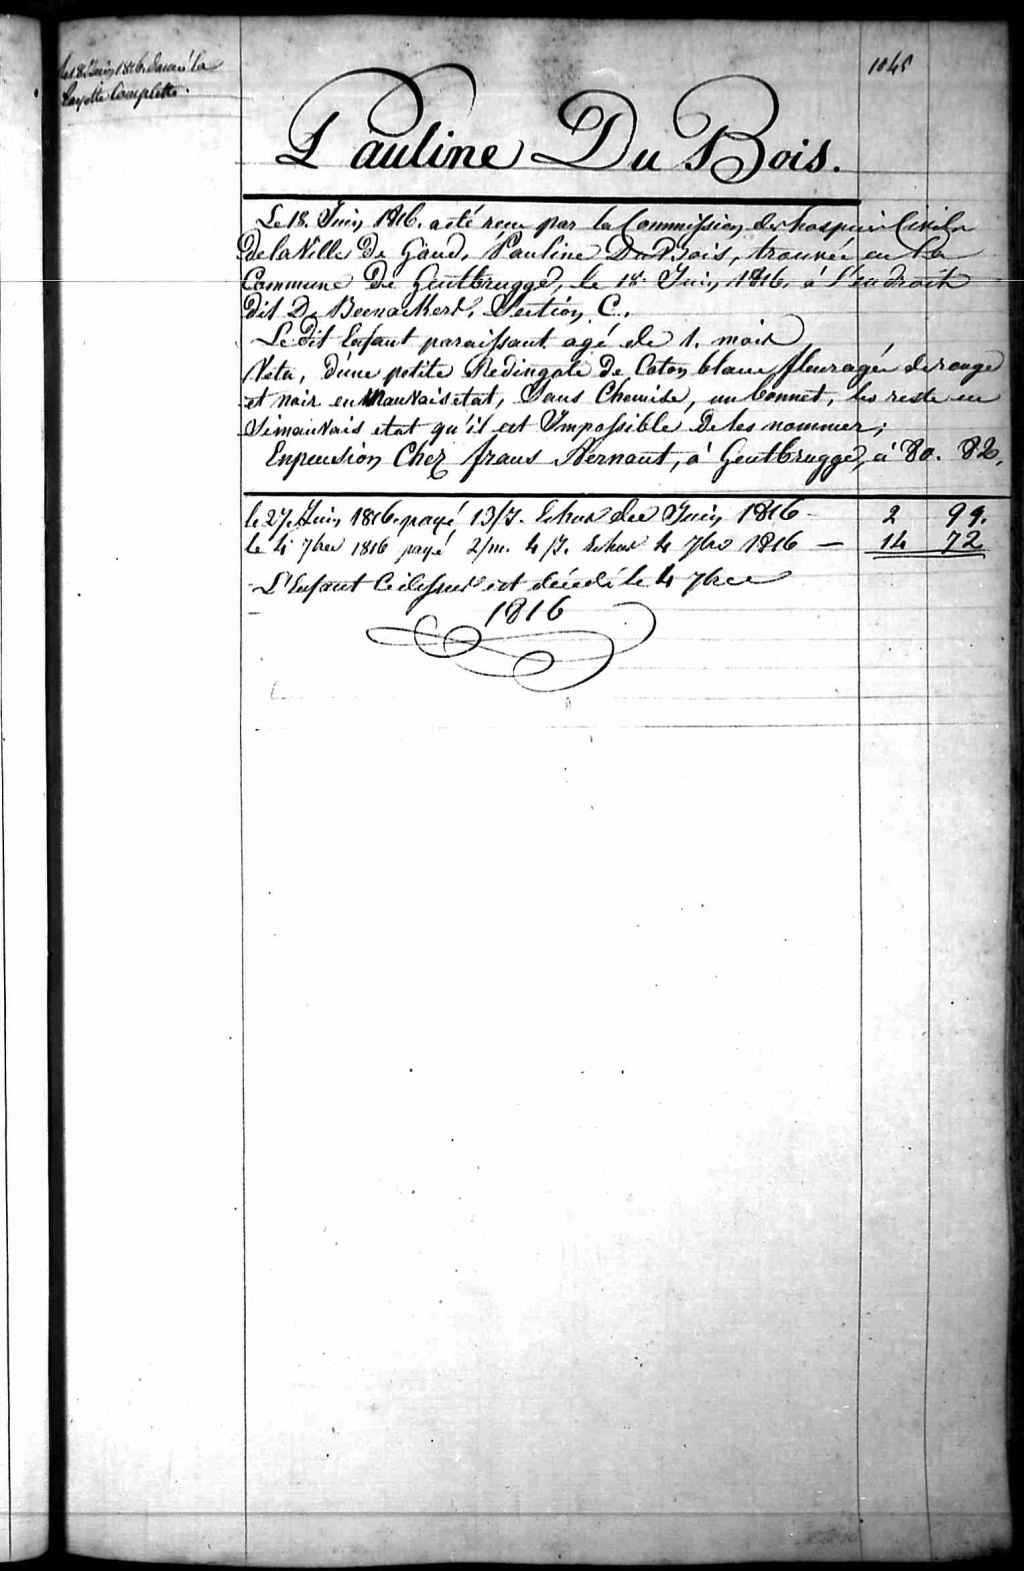 le 18 Juin 1816. donné la
Layette Complette.
1045
Pauline Du Bois.
Le 18. Juin 1816. a eté recu par la Commission des hospices Civils
de la Ville De Gand, Pauline Du Bois, trouvée en la
Commune De Gentbrugge, le 18. Juin 1816. á l'endroit
dit De Section C.
Le dit Enfant paraissant agé de 1. mois
Vetu, d'une petite Redingote De Coton blanc fleuragée de rouge
et noir en Mauvais etat, Sans Chemise, un bonnet, les reste en
Si mauvais etat qu'il est Impossible De les nommer;
Enpension Chez frans Hernaut, á Gentbrugge, á 80. 82.
le 27. Juin 1816. payé 13/J. Echus de Juin 1816 - 2 99.
le 4 7bre 1816 payé 2/m. 4/J. Echus 4 7bre 1816 — 14 72
L'Enfant Cidessus est décedé le 4 7bre
1816